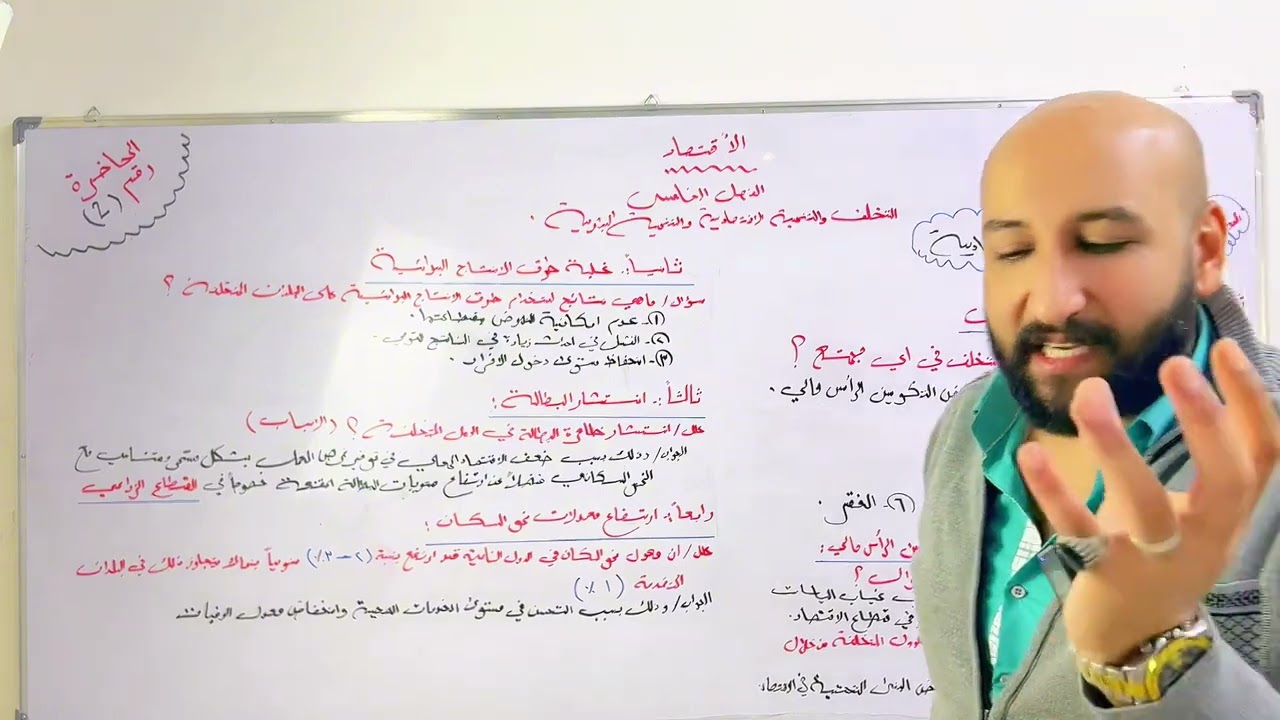 المحاضرة
رقم (2)
الاقتصاد
الفصل الخامس
التخلف والتنمية الاقتصادية والتنمية البشرية .
ثانياً:. غلبة طرق الانتاج البدائية
سؤال/ ماهي نتائج استخدام طرق الانتاج البدائية على البلدان المتخلفة ؟
(١)- عدم امكانية النهوض بقطاعاتها.
(٢)- الفشل في احداث زيادة في الناتج القومي.
(٣)- انخفاض مستوى دخول الافراد .
ثالثاً:. انتشار البطالة :
علل/ انتشار ظاهرة البطالة في الدول المتخلفة ؟ (الاسباب)
الجواب/ وذلك بسبب ضعف الاقتصاد المحلي في توفير فرص العمل بشكل مستمر ومتناسب مع
النمو السكاني فضلاً عن ارتفاع مستويات البطالة المقنعة خصوصاً في القطاع الزراعي
رابعاً:. ارتفاع معدلات نمو السكان :
علل/ أن معدل نمو السكان في الدول النامية قد ارتفع بنسبة (٢-٣٪) سنوياً بينما لا يتجاوز ذلك في البلدان
المتقدمة (١٪)
الجواب/ وذلك بسبب التحسن في مستوى الخدمات الصحية وانخفاض معدل الوفيات
في أي مجتمع ؟
التكوين الرأس مالي .
(٦)- الفقر .
الرأس مالي :
غياب
في قطاع الاقتصاد.
الدول المتخلفة من خلال
البنى التحتية في الاقتصاد.